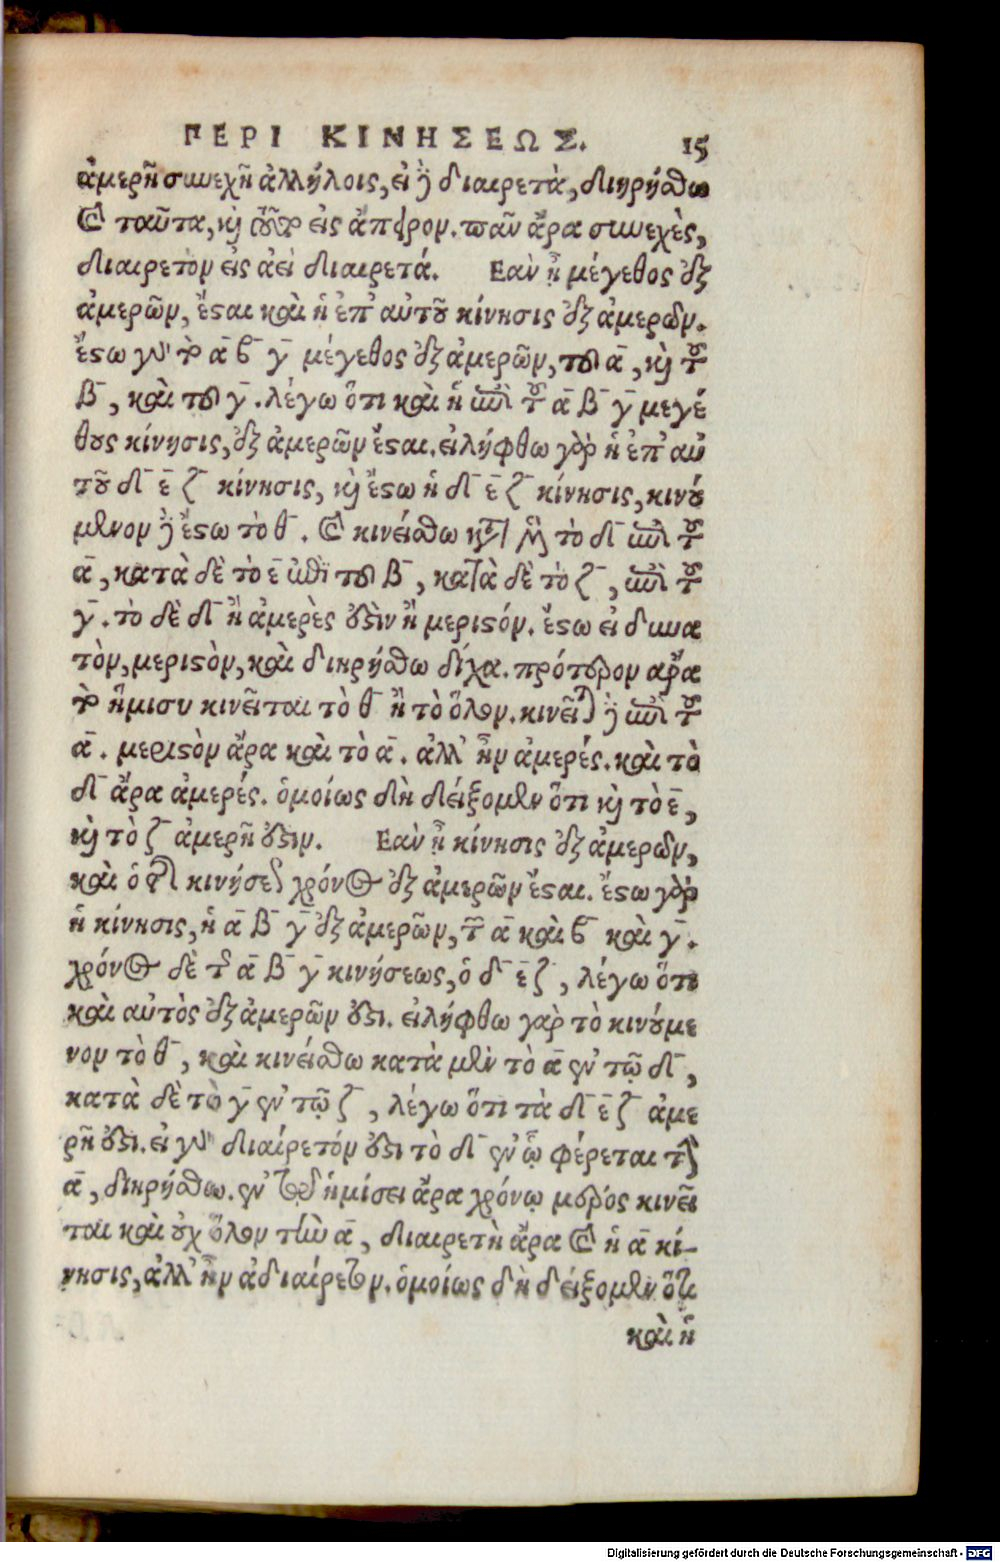 ΠΕΡΙ ΚΙΝΗΣΕΩΣ. 15
ἀμερῆ συνεχῆ ἀλλήλοις, εἰ δὲ διαιρετὰ, διῃρήσθω
καὶ ταῦτα, καὶ τοῦτο εἰς ἄπειρον. πᾶν ἄρα συνεχὲς,
διαιρετὸν εἰς ἀεὶ διαιρετά. Εὰν ᾖ μέγεθος ἐξ
ἀμερῶν, ἔσται καὶ ἡ ἐπ' αὐτοῦ κίνησις ἐξ ἀμερῶν.
ἔστω γὰρ τὸ ᾱ β̄ γ̄ μέγεθος ἐξ ἀμερῶν, τοῦ ᾱ, καὶ τοῦ
β̄, καὶ τοῦ γ̄. λέγω ὅτι καὶ ἡ ἐπὶ τοῦ ᾱ β̄ γ̄ μεγέ
θους κίνησις, ἐξ ἀμερῶν ἔσται. εἰλήφθω γὰρ ἡ ἐπ' αὐ
τοῦ δ̄ ε̄ ζ̄ κίνησις, καὶ ἔστω ἡ δ̄ ε̄ ζ̄ κίνησις, κινού
μενον δὲ ἔστω τὸ θ̄. καὶ κινείσθω κατὰ μὲν τὸ δ̄ ἐπὶ τοῦ
ᾱ, κατὰ δὲ τὸ ε̄ ἐπὶ τοῦ β̄, κατὰ δὲ τὸ ζ̄, ἐπὶ τοῦ
γ̄. τὸ δὲ δ̄ ἢ ἀμερὲς ἐστὶν ἢ μεριστόν. ἔστω εἰ δυνα
τὸν, μεριστὸν, καὶ διῃρήσθω δίχα. πρότερον ἄρα
τὸ ἥμισυ κινεῖται τὸ θ̄ ἢ τὸ ὅλον. κινεῖται δὲ ἐπὶ τοῦ
ᾱ. μεριστὸν ἄρα καὶ τὸ ᾱ. ἀλλ' ἦν ἀμερές. καὶ τὸ
δ̄ ἄρα ἀμερές. ὁμοίως δὴ δείξομεν ὅτι καὶ τὸ ε̄,
καὶ τὸ ζ̄ ἀμερῆ ἐστιν. Εὰν ᾖ κίνησις ἐξ ἀμερῶν,
καὶ ὁ τῆς κινήσεως χρόνος ἐξ ἀμερῶν ἔσται. ἔστω γὰρ
ἡ κίνησις, ἡ ᾱ β̄ γ̄ ἐξ ἀμερῶν, τῶν ᾱ καὶ β̄ καὶ γ̄.
χρόνος δὲ τῆς ᾱ β̄ γ̄ κινήσεως, ὁ δ̄ ε̄ ζ̄, λέγω ὅτι
καὶ αὐτὸς ἐξ ἀμερῶν ἐστι. εἰλήφθω γὰρ τὸ κινούμε
νον τὸ θ̄, καὶ κινείσθω κατὰ μὲν τὸ ᾱ ἐν τῷ δ̄,
κατὰ δὲ τὸ γ̄ ἐν τῷ ζ̄, λέγω ὅτι τὰ δ̄ ε̄ ζ̄ ἀμε
ρῆ ἐστι. εἰ γὰρ διαίρετόν ἐστι τὸ δ̄ ἐν ᾧ φέρεται τὴν
ᾱ, διῃρήσθω. ἐν τῷ ἡμίσει ἄρα χρόνῳ μέρος κινεῖ
ται καὶ οὐχ ὅλον τὴν ᾱ, διαιρετὴ ἄρα καὶ ἡ ᾱ κί-
νησις, ἀλλ' ἦν ἀδιαίρετον. ὁμοίως δὴ δείξομεν ὅτι
καὶ ἡ
Digitalisierung gefördert durch die Deutsche Forschungsgemeinschaft - DFG